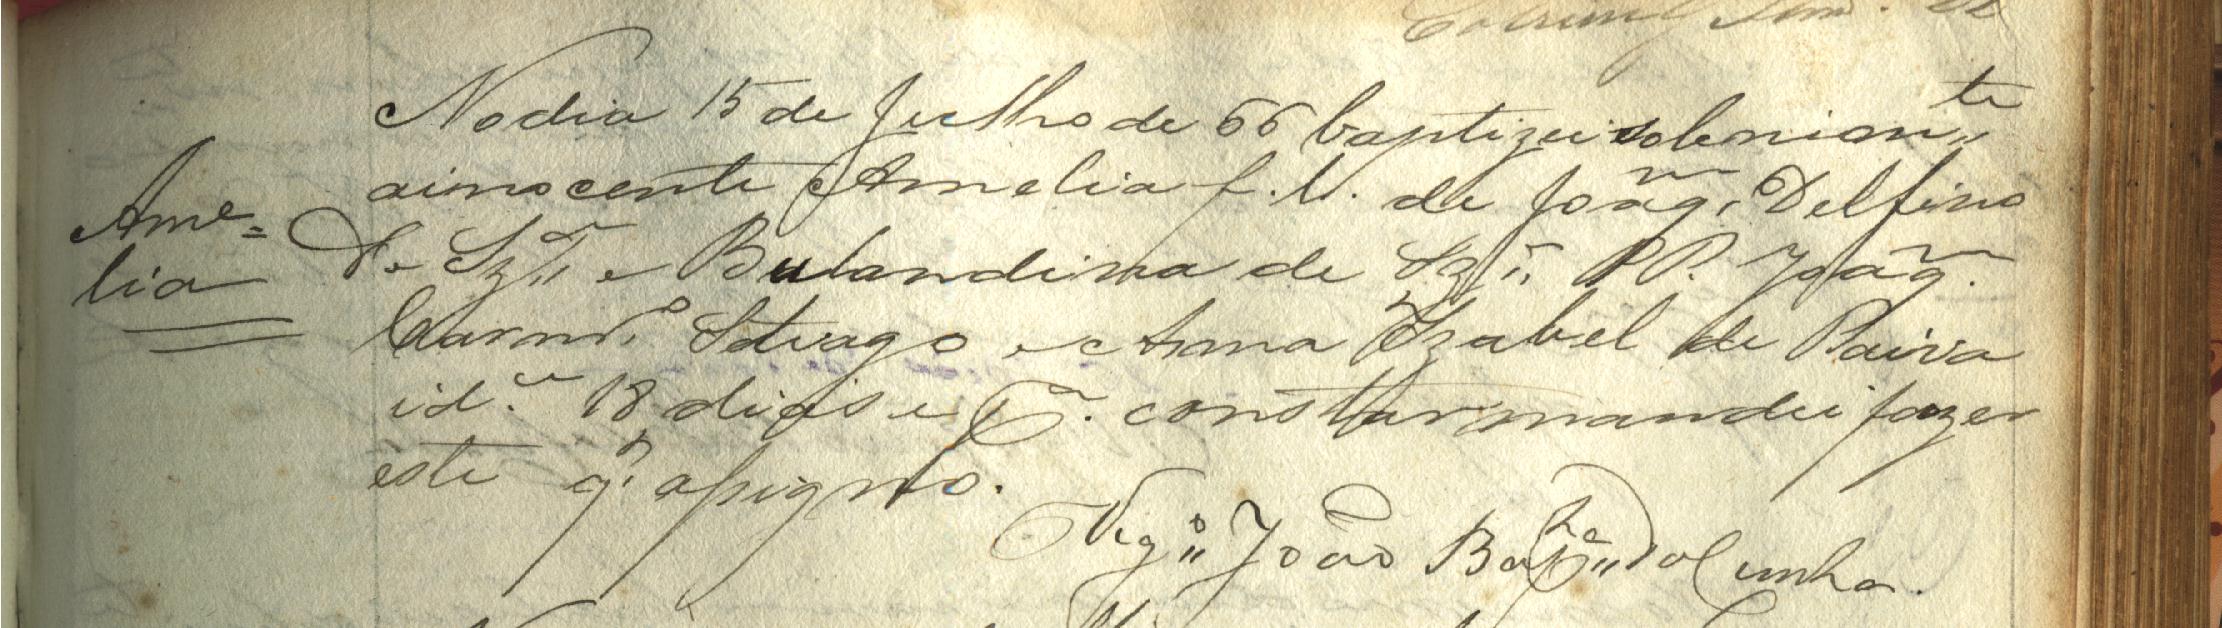 No dia 15 de Julho de 66 baptizei solemnem.te
Ame=
a inocente Amelia f. l. de Joaq.m Delfino
lia
de Sz.ª e Bulandina de Sz.ª PP. Joaq.m
Carnr.º Stiago e Anna Izabel de Paiva
id.e 18 dias e p.ª constar mandei fazer
este q. assigno.
Vig.º João Bap.ta da Cunha.